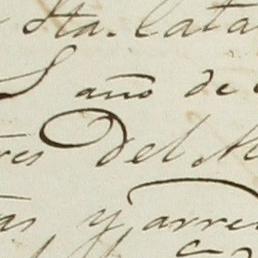 Sta. Cata
S año de
res del M
as y arre